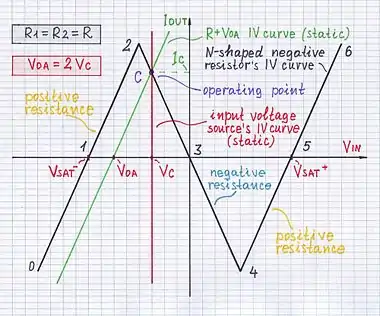 IOUT
R1 = R2 = R.
R+VOA IV curve (static)
2
IC
N-shaped negative
resistor's IV curve
6
VOA = 2 VC
C
operating point
positive
resistance
input voltage
source's IV curve
(static)
1
3
5
VIN
VSAT-
VOA
VC
VSAT+
negative
resistance
positive
resistance
0
4